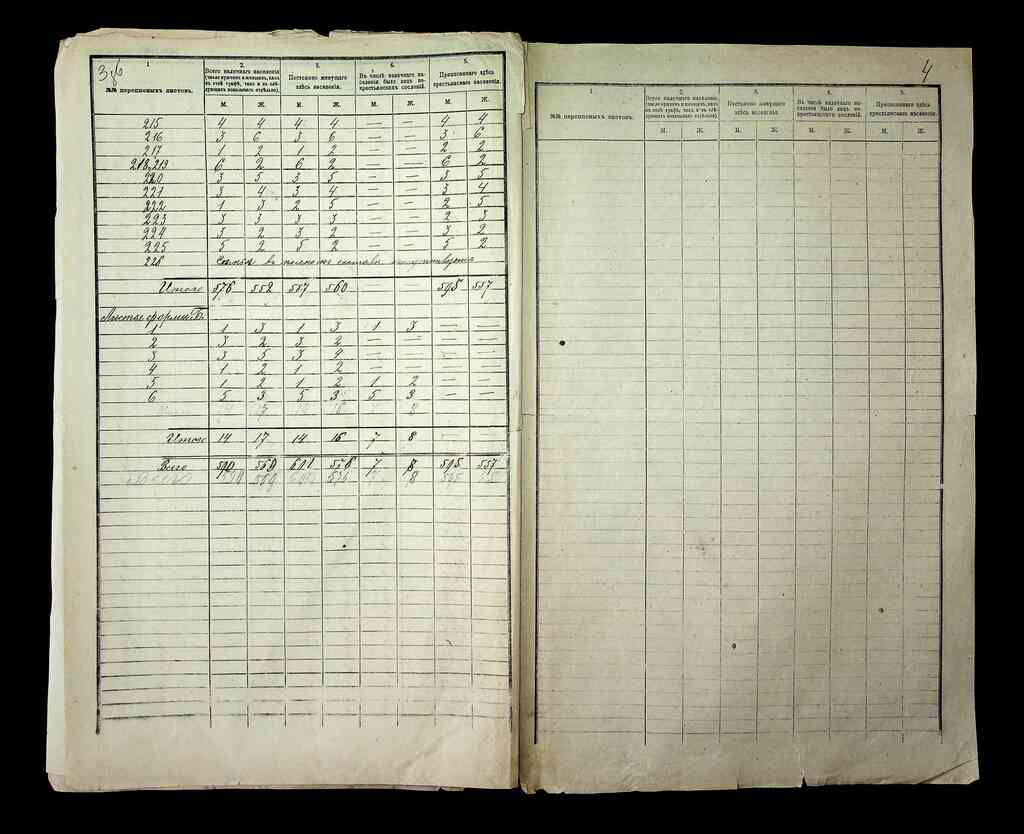 3об
1. 2. 3. 4. 5.
№№ переписныхъ листовъ. Всего наличнаго населенія (число мужчинъ и женщинъ, какъ въ этой графѣ, такъ и въ слѣдующихъ показывать отдѣльно). Постоянно живущаго здѣсь населенія. Въ числѣ наличнаго населенія было лицъ некрестьянскихъ сословій. Приписаннаго здѣсь крестьянскаго населенія.
М. Ж. М. Ж. М. Ж. М. Ж.
215 4 4 4 4 — — 4 4
216 3 6 3 6 — — 3 6
217 1 2 1 2 — — 2 2
218,219 6 2 6 2 — — 6 2
220 3 5 3 5 — — 3 5
221 3 4 3 4 — — 3 4
222 1 3 2 5 — — 2 5
223 3 3 3 3 — — 2 3
224 3 2 3 2 — — 3 2
225 5 2 5 2 — — 5 2
226 въ составѣ
Итого 576 552 560 — — 595 557
Листы формы Б.
1 1 3 1 3 1 3 — —
2 3 2 3 2 — — — —
3 3 5 3 4 — — — —
4 1 2 1 2 — — — —
5 1 2 1 2 1 2 — —
6 5 3 5 3 5 3 — —
17 16 8
Итого 14 17 14 16 7 8 — —
Всего 590 569 601 576 7 8 595 557
559 8 595
4
1. 2. 3. 4. 5.
№№ переписныхъ листовъ. Всего наличнаго населенія (число мужчинъ и женщинъ, какъ въ этой графѣ, такъ и въ слѣдующихъ показывать отдѣльно). Постоянно живущаго здѣсь населенія. Въ числѣ наличнаго населенія было лицъ некрестьянскихъ сословій. Приписаннаго здѣсь крестьянскаго населенія.
М. Ж. М. Ж. М. Ж. М. Ж.